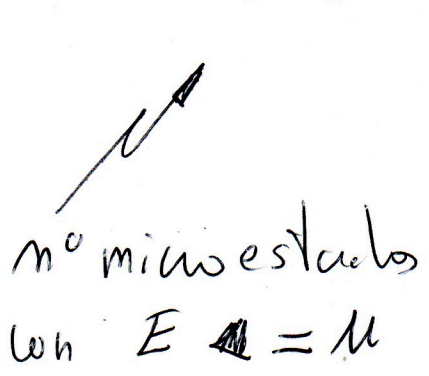 nº microestados
con E = U